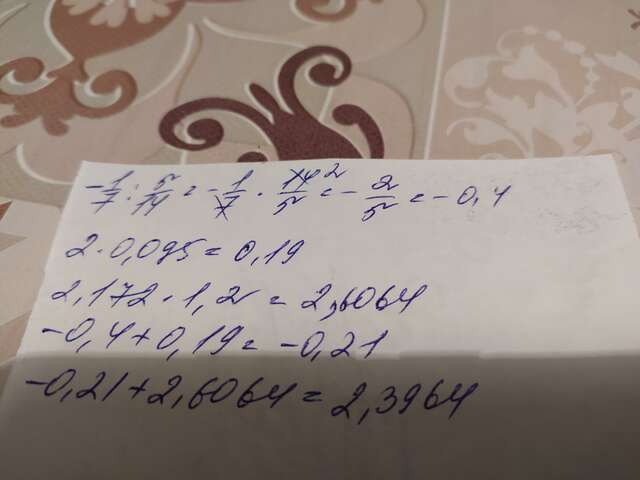 -1/7 : 5/14 = -1/7 · 14²/5 = -2/5 = -0,4
2 · 0,095 = 0,19
2,172 · 1,2 = 2,6064
-0,4+0,19 = -0,21
-0,21+2,6064 = 2,3964